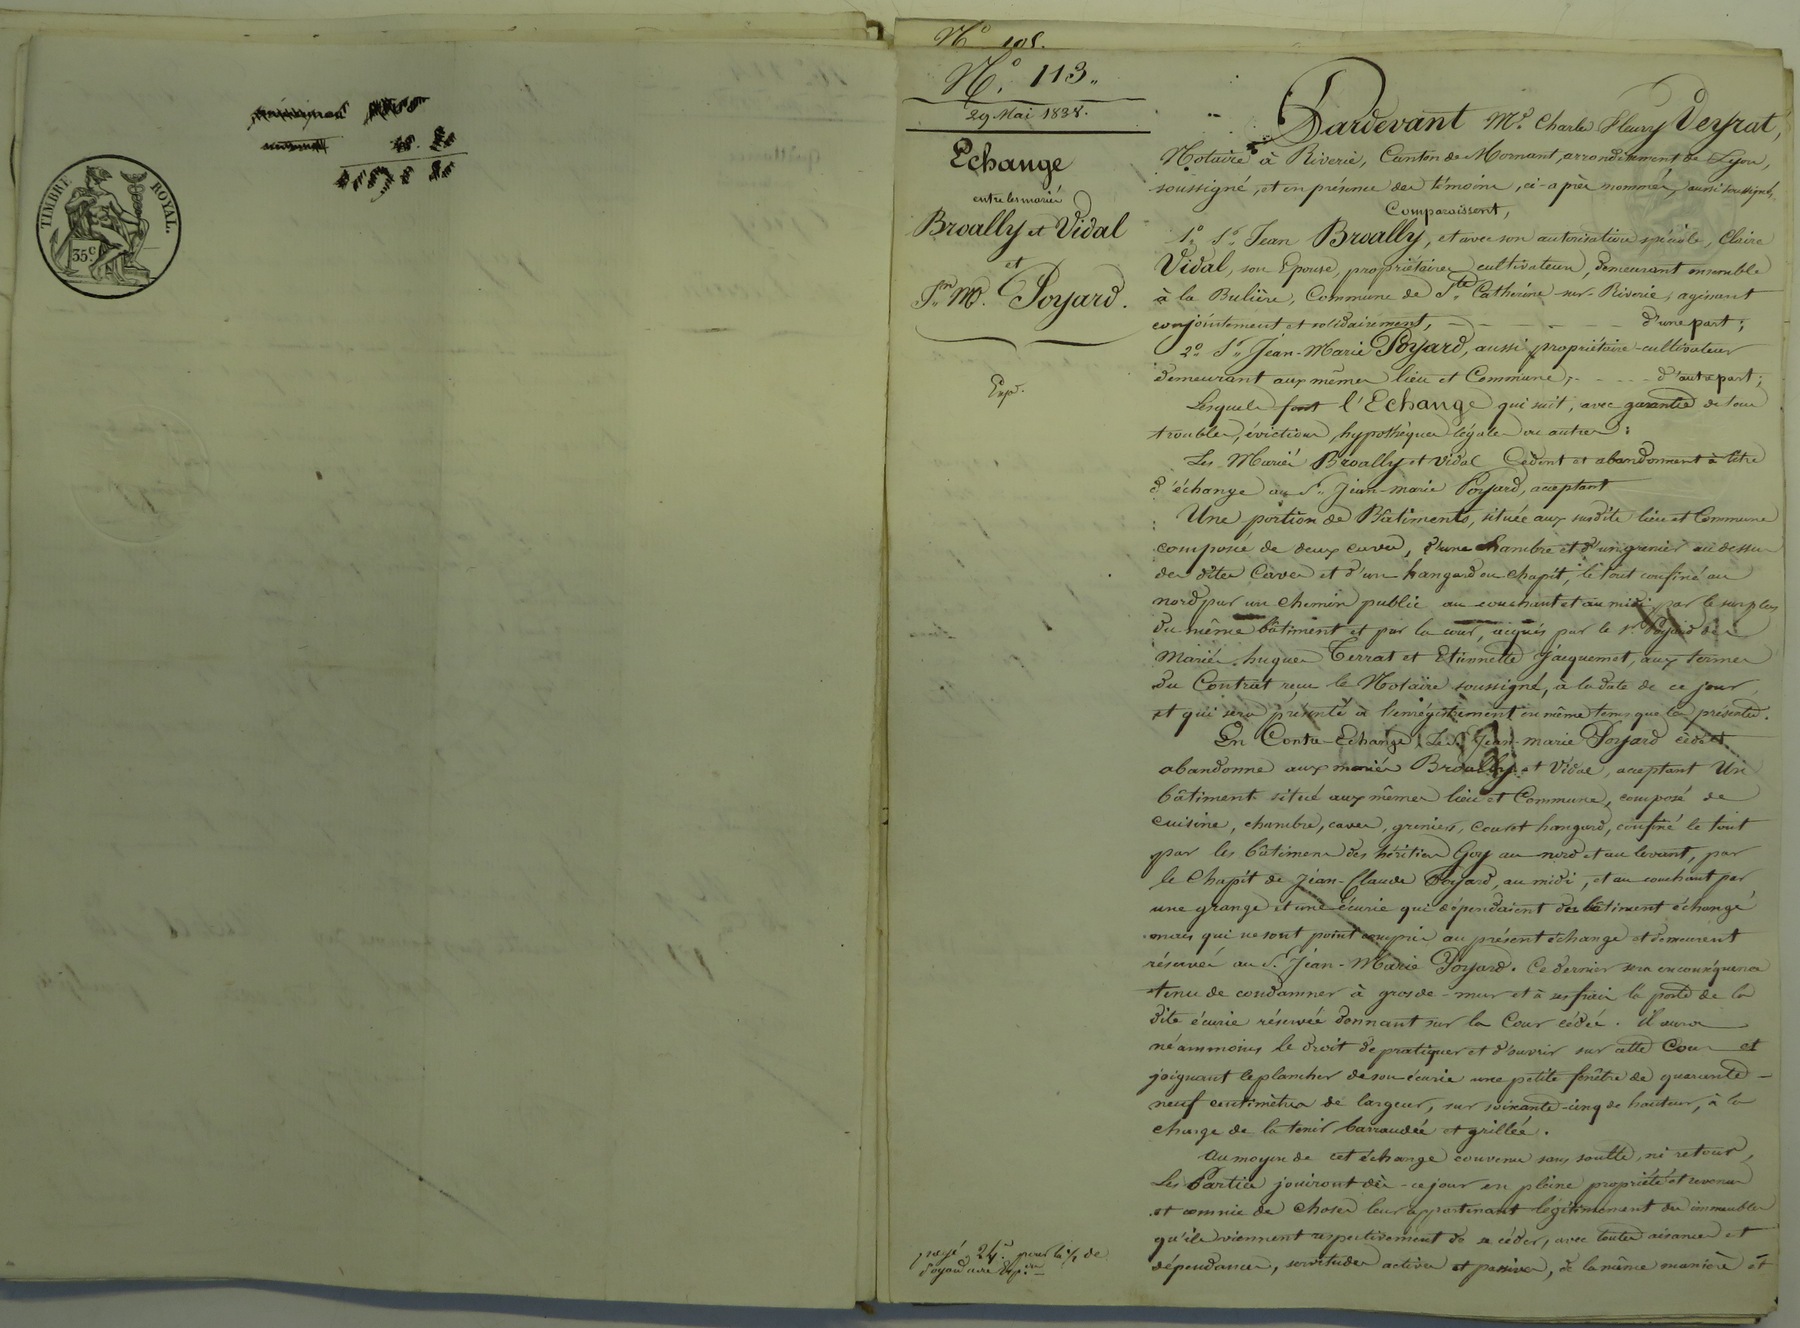 TIMBRE ROYAL.
35c
No 105.
No. 113.
29 Mai 1838.
Echange
entre les mariés
Broally et Vidal
et
Jn. M. Poyard.
Expd.
payé 24f. pour la 1/2 de
Poyard avec Expon
Pardevant Me. Charles Fleury Veyrat,
Notaire à Riverie, Canton de Mornant, arrondissement de Lyon,
soussigné, et en présence des témoins, ci-après nommés, aussi soussignés,
Comparaissent,
1o. Sr. Jean Broally, et avec son autorisation spéciale, Claire
Vidal, son Epouse, propriétaires cultivateurs, demeurant ensemble
à la Bulière, Commune de Ste. Catherine-sur-Riverie, agissant
conjointement et solidairement, - - - - - d'une part;
2o. Sr. Jean-Marie Poyard, aussi propriétaire-cultivateur
demeurant aux mêmes lieu et Commune, - - - - d'autre part;
Lesquels font l'Echange qui suit, avec garantie de tous
troubles, évictions, hypothèques légales ou autres:
Les Mariés Broally et Vidal Cèdent et abandonnent à titre
d'échange au Sr. Jean-marie Poyard, acceptant
Une portion de Bâtiments, située aux susdits lieu et Commune
composée de deux caves, d'une chambre et d'un grenier au dessus
des dites Caves et d'un hangard ou chapit, le tout confiné au
nord par un chemin public au couchant et au midi par le surplus
du même bâtiment et par la cour, acquis par le Sr. Poyard des
Mariés hugues Terrat et Etiennette Jacquemet, aux termes
du Contrat reçu le Notaire soussigné, à la date de ce jour
et qui sera présenté à l'enrégistrement en même tems que les présentes.
En Contre-Echange, Le Sr. Jean-marie Poyard cède et
abandonne aux mariés Broally et Vidal, acceptant Un
bâtiment situé aux mêmes lieu et Commune, composé de
cuisine, chambre, caves, greniers, Cour et hangard, confiné le tout
par les bâtimens des héritiers Goy au nord et au levant, par
le Chapit de Jean-Claude Poyard, au midi, et au couchant par
une grange et une écurie qui dépendaient des bâtiment échangé
mais qui ne sont point compris au présent échange et demeurent
réservés au Sr. Jean-Marie Poyard. Ce dernier sera en conséquence
tenu de condamner à gros de-mur et à ses frais la porte de la
dite écurie réservée donnant sur la Cour cédée. il aura
néammoins le droit de pratiquer et d'ouvrir sur cette Cour et
joignant le plancher de son écurie une petite fenêtre de quarante-
neuf centimètres de largeur, sur soixante-cinq de hauteur, à la
charge de la tenir barraudée et grillée.
Au moyen de cet échange convenu sans soulte, ni retour,
Les Parties jouiront dès-ce jour en pleine propriété et revenus
et comme de choses leur appartenant légitimement des immeubles
qu'ils viennent respectivement de se céder, avec toutes aisances et
dépendances, servitudes actives et passives, de la même manière et